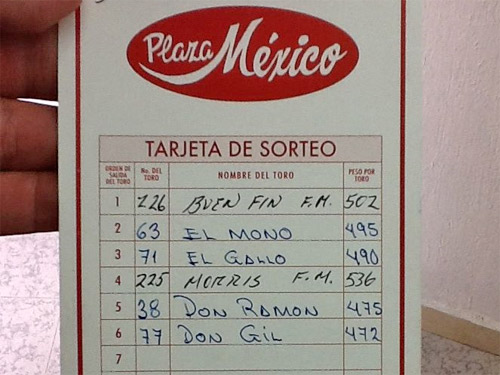 Plaza México
TARJETA DE SORTEO
ORDEN DE SALIDA DEL TORO No. DEL TORO NOMBRE DEL TORO PESO POR TORO
1 226 BUEN FIN F.M. 502
2 63 EL MONO 495
3 71 EL GALLO 490
4 225 MORRIS F.M. 536
5 38 DON RAMON 475
6 77 DON GIL 472
7